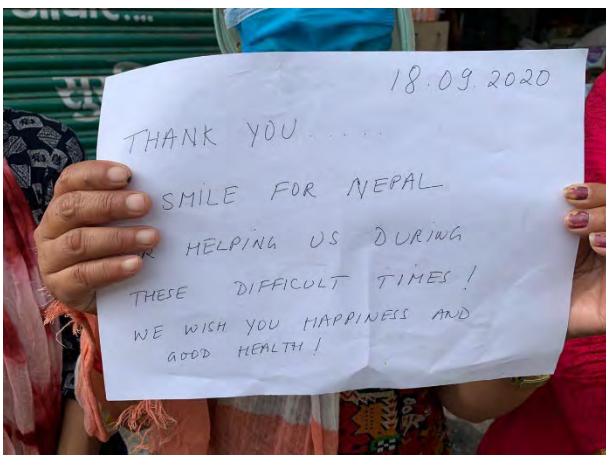 18.09.2020
THANK YOU.....
SMILE FOR NEPAL
HELPING US DURING
THESE DIFFICULT TIMES!
WE WISH YOU HAPPINESS AND
GOOD HEALTH!